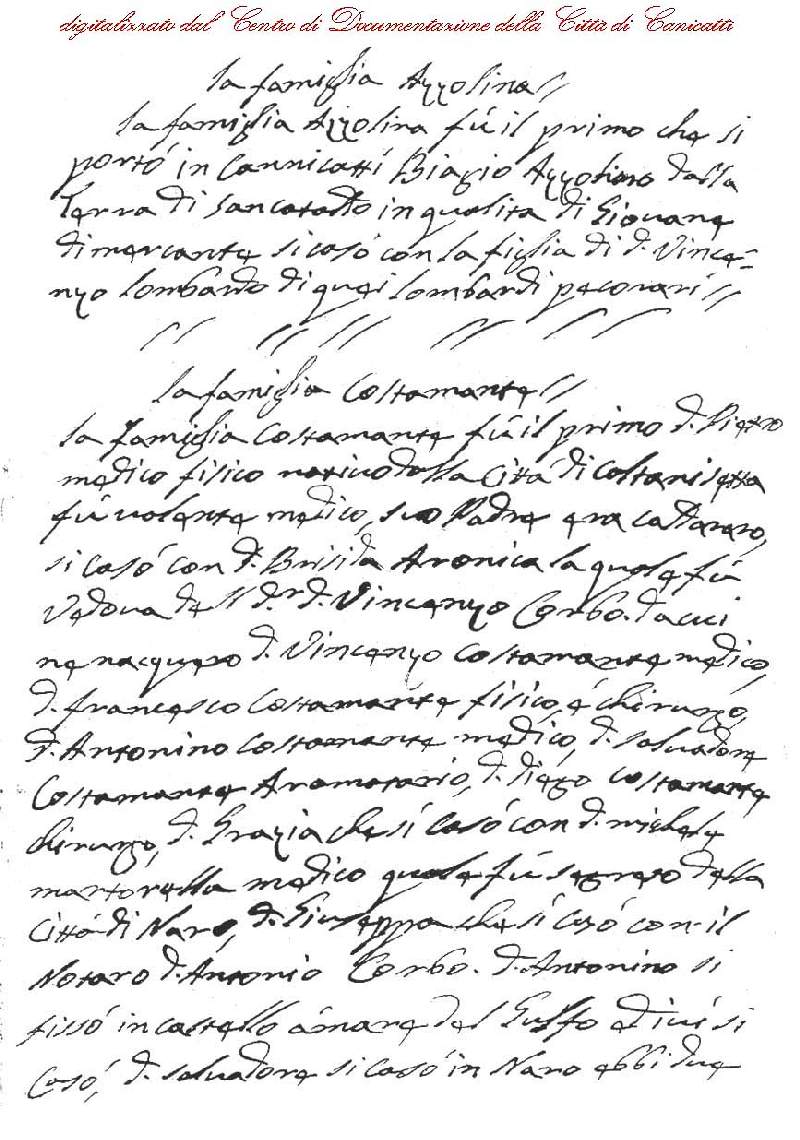 digitalizzato dal Centro di Documentazione della Città di Canicattì
la famiglia Azzolina //
la famiglia Azzolina fù il primo che si
portò in Cannicattì Biagio Azzolino dalla
Terra di Sancataldo in qualità di Giovane
di mercante si casò con la figlia di d. Vince=
nzo lombardo di quei lombardi pecorari //
// // // // //
la famiglia Costamante //
la famiglia Costamante fù il primo d. Pietro
medico fisico nativo dalla Città di Coltanisetta
fù valente medico, suo Padre era
si casò con d. Brisida Aronica la quale fù
Vedova dell d.r d. Vincenzo Corbo. da cui
ne nacquero d. Vincenzo Costamante medico,
d. francesco Costamante fisico, è chirurgo,
d. Antonino Costamante medico, d. Salvadore
Costamante Aromatario, d. Diego Costamante
chirurgo, d. Grazia che si casò con d. michele
martorella medico quale fù segreto della
Città di Naro, d. Giuseppa che si casò con il
Notaro d. Antonio Corbo. d. Antonino si
fissò in castello àmare del Gulfo ed ivi si
casò, d. Salvadore si casò in Naro ebbi due